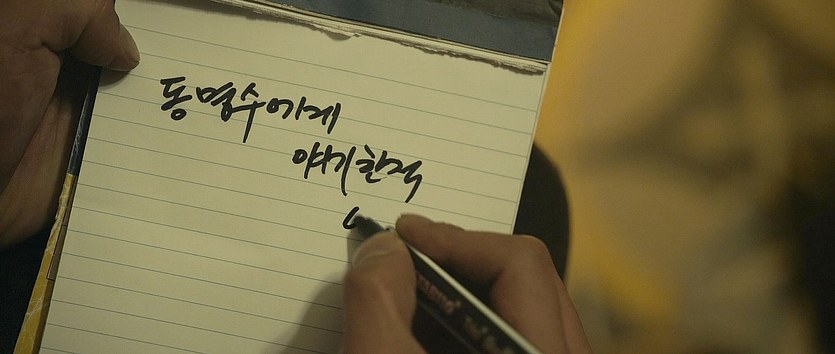 동명수에게
야기한적